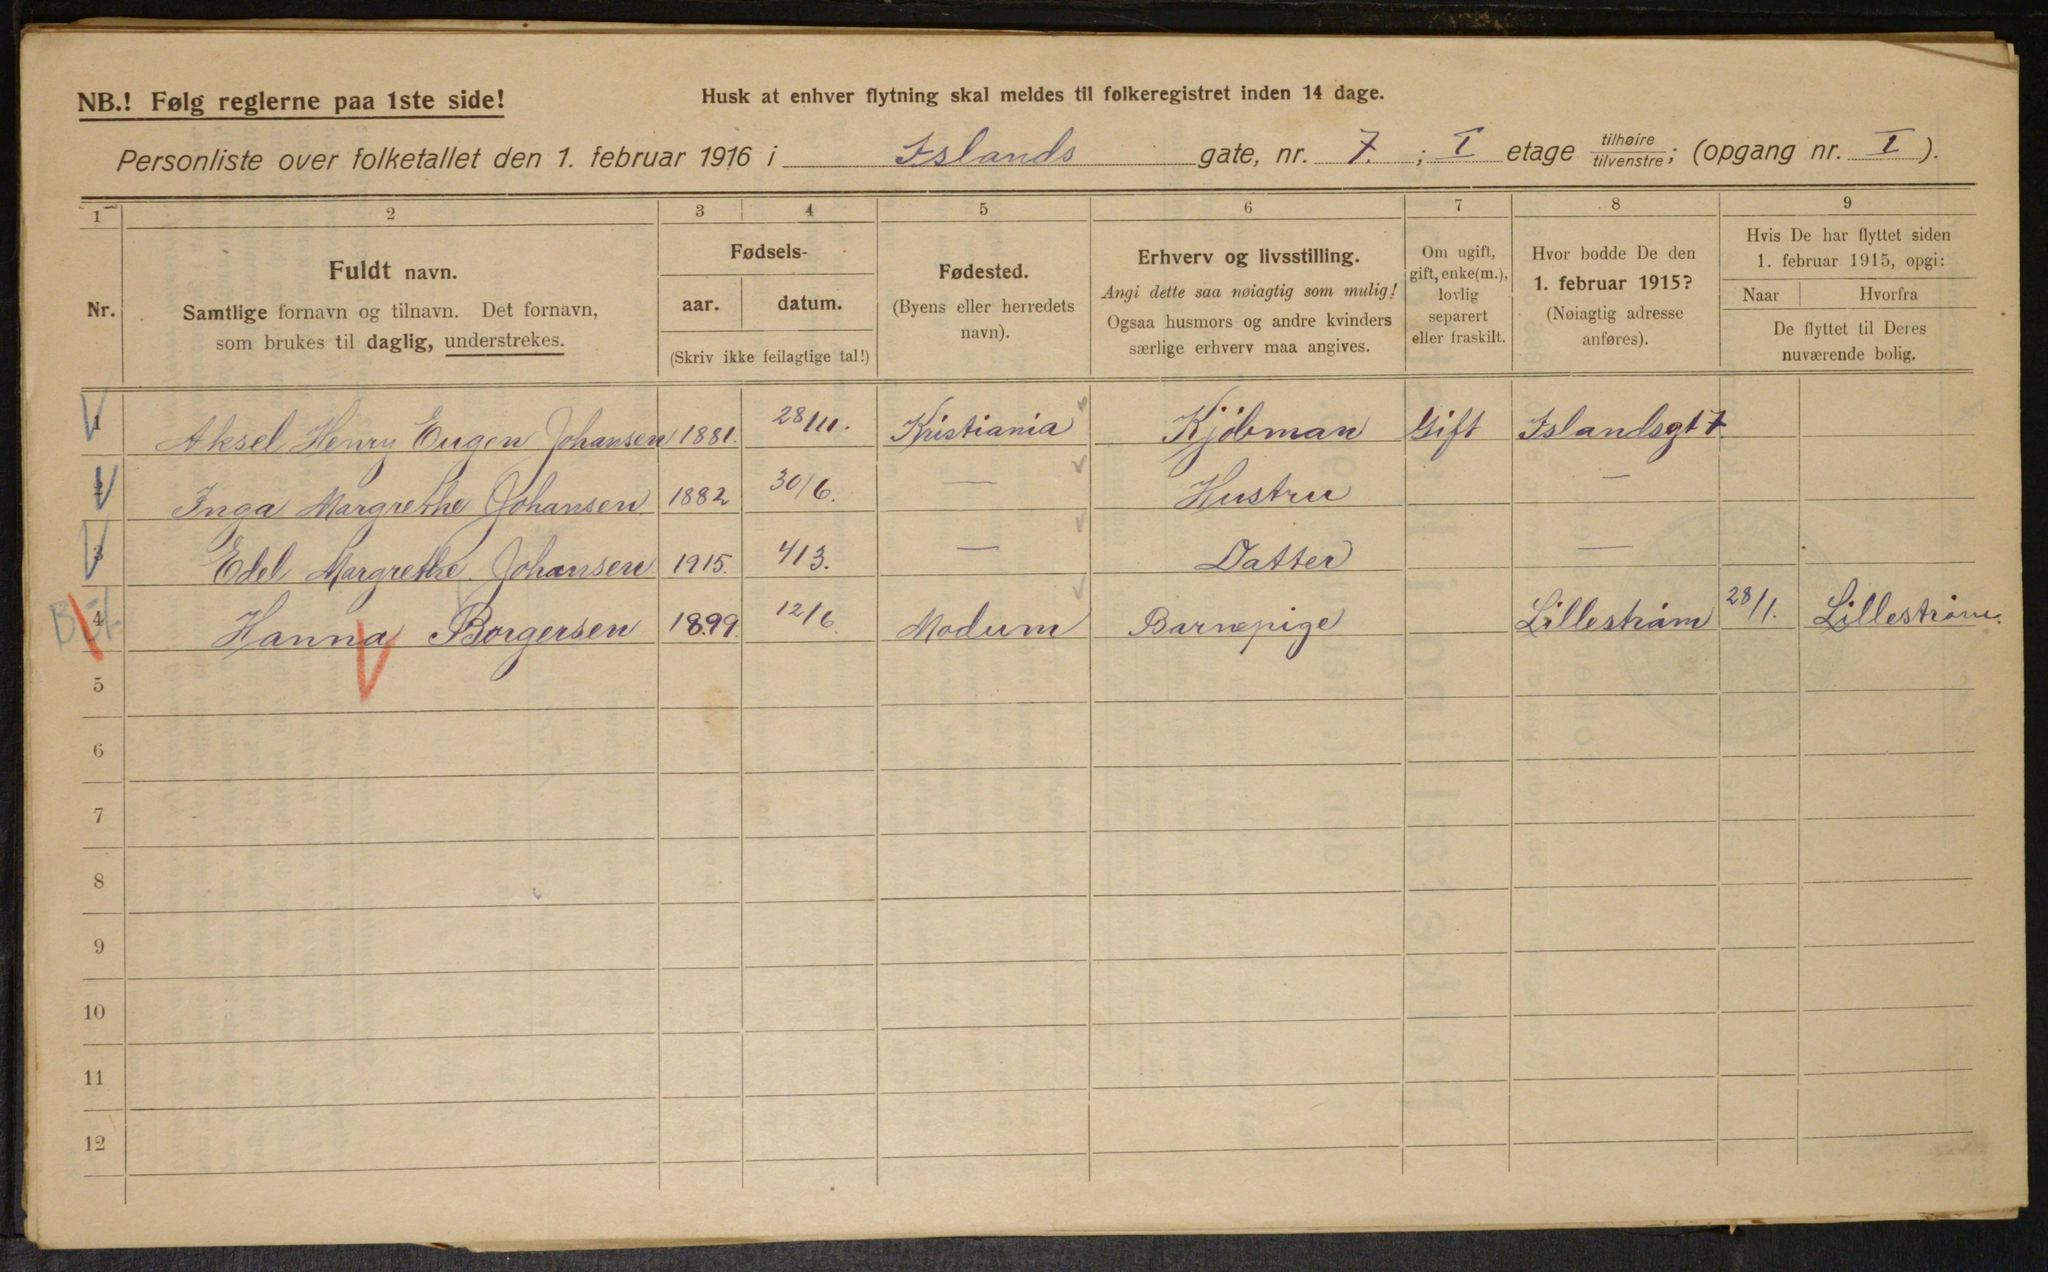 NB.! Følg reglerne paa 1ste side!
Husk at enhver flytning skal meldes til folkeregistret inden 14 dage.
Personliste over folketallet den 1. februar 1916 i Islands gate, nr. 7. ; I etage tilhøire/tilvenstre; (opgang nr. I ).
1 2 3 4 5 6 7 8 9
Nr.
Fuldt navn.
Samtlige fornavn og tilnavn. Det fornavn,
som brukes til daglig, understrekes.
Fødsels-
aar. datum.
(Skriv ikke feilagtige tal!)
Fødested.
(Byens eller herredets
navn).
Erhverv og livsstilling.
Angi dette saa nøiagtig som mulig!
Ogsaa husmors og andre kvinders
særlige erhverv maa angives.
Om ugift,
gift, enke(m.),
lovlig
separert
eller fraskilt.
Hvor bodde De den
1. februar 1915?
(Nøiagtig adresse
anføres).
Hvis De har flyttet siden
1. februar 1915, opgi:
Naar Hvorfra
De flyttet til Deres
nuværende bolig.
1 Aksel Henry Eugen Johansen 1881. 28/11. Kristiania Kjöbman Gift Islandsgt 7
2 Inga Margrethe Johansen 1882 30/6. — Hustru —
3 Edel Margrethe Johansen 1915. 4/3. — Datter —
4 Hanna Borgersen 1899. 12/6. Modum Barnepige Lillestrøm 28/1. Lillestrøm.
5
6
7
8
9
10
11
12